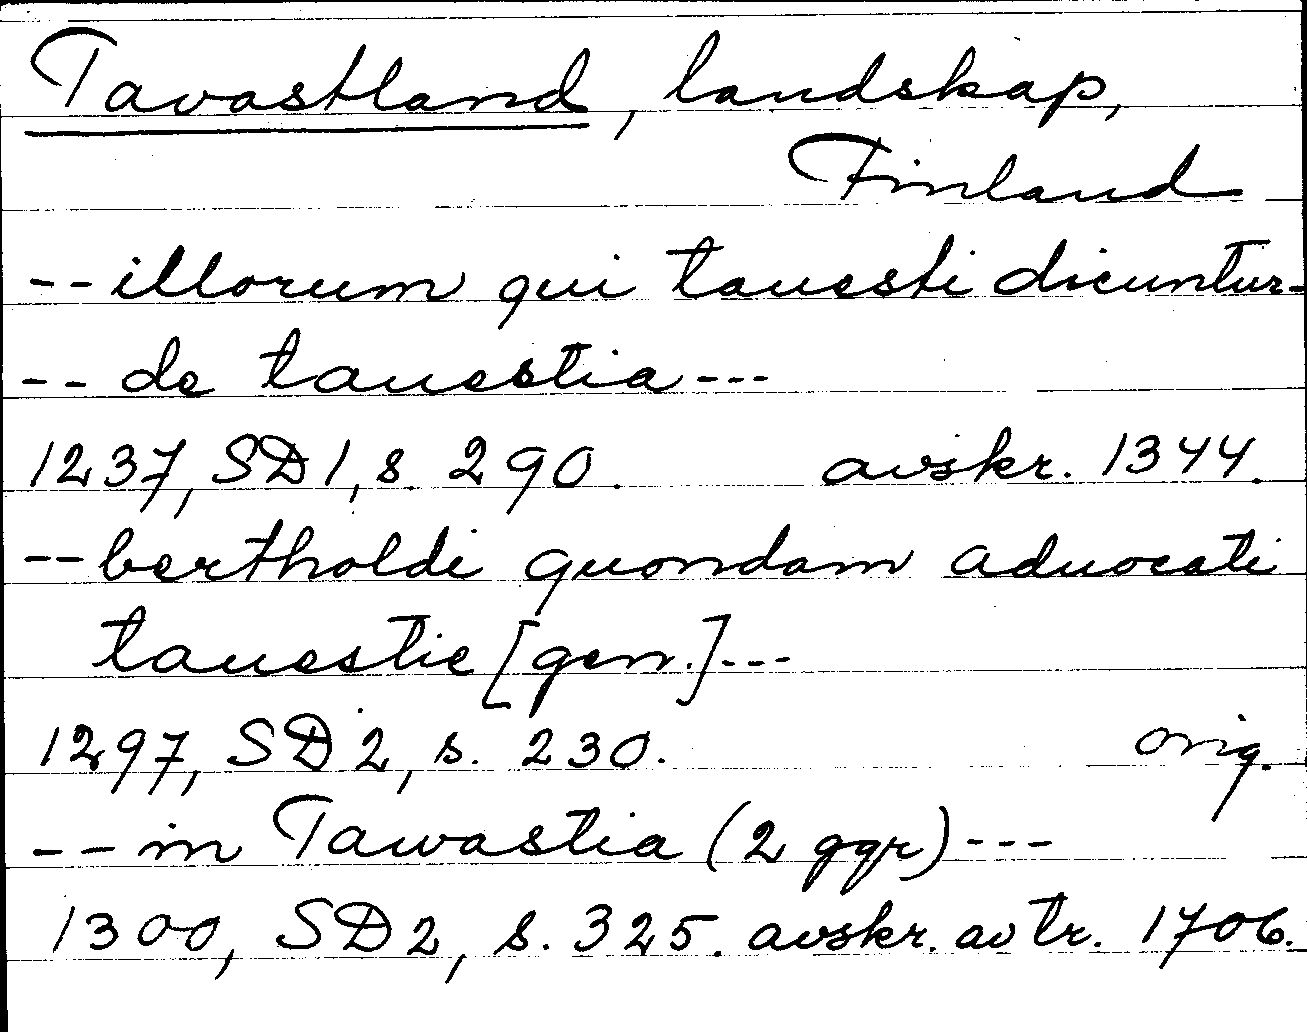 Tavastland, landskap,
Finland
-- illorum qui tauesti dicuntur -
-- de tauestia ---
1237, SD 1, s. 290. avskr. 1344.
-- bertholdi quondam aduocati
tauestie [gen.] ---
1297, SD 2, s. 230. orig.
-- in Tawastia (2 ggr) ---
1300, SD 2, s. 325. avskr. av tr. 1706.